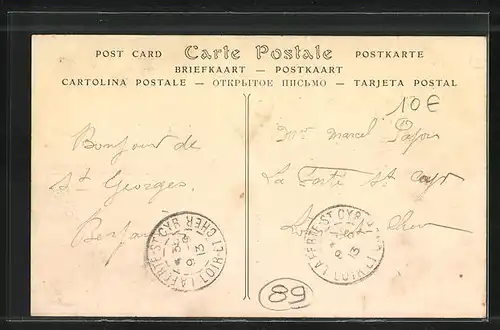 POST CARD Carte Postale POSTKARTE
BRIEFKAART — POSTKAART
CARTOLINA POSTALE — ОТКРЫТОЕ ПИСЬМО — TARJETA POSTAL
10€
Bonjour de
St Georges.
Mr Marcel
La Ferté St Cyr
Loir et Cher
LA FERTE-ST CYR LOIR-ET-CHER
13
LA FERTE-ST CYR LOIR-ET-
13
89